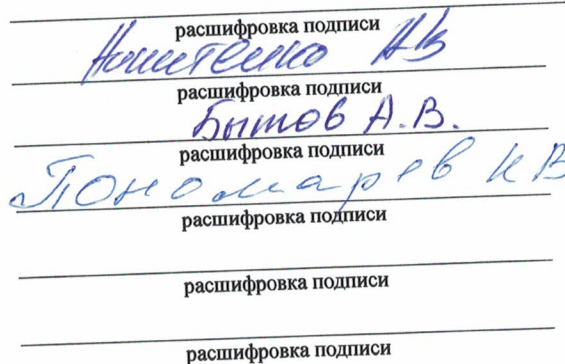 расшифровка подписи
Никитенко АВ
расшифровка подписи
Бытов А.В.
расшифровка подписи
Пономарев КВ
расшифровка подписи
расшифровка подписи
расшифровка подписи